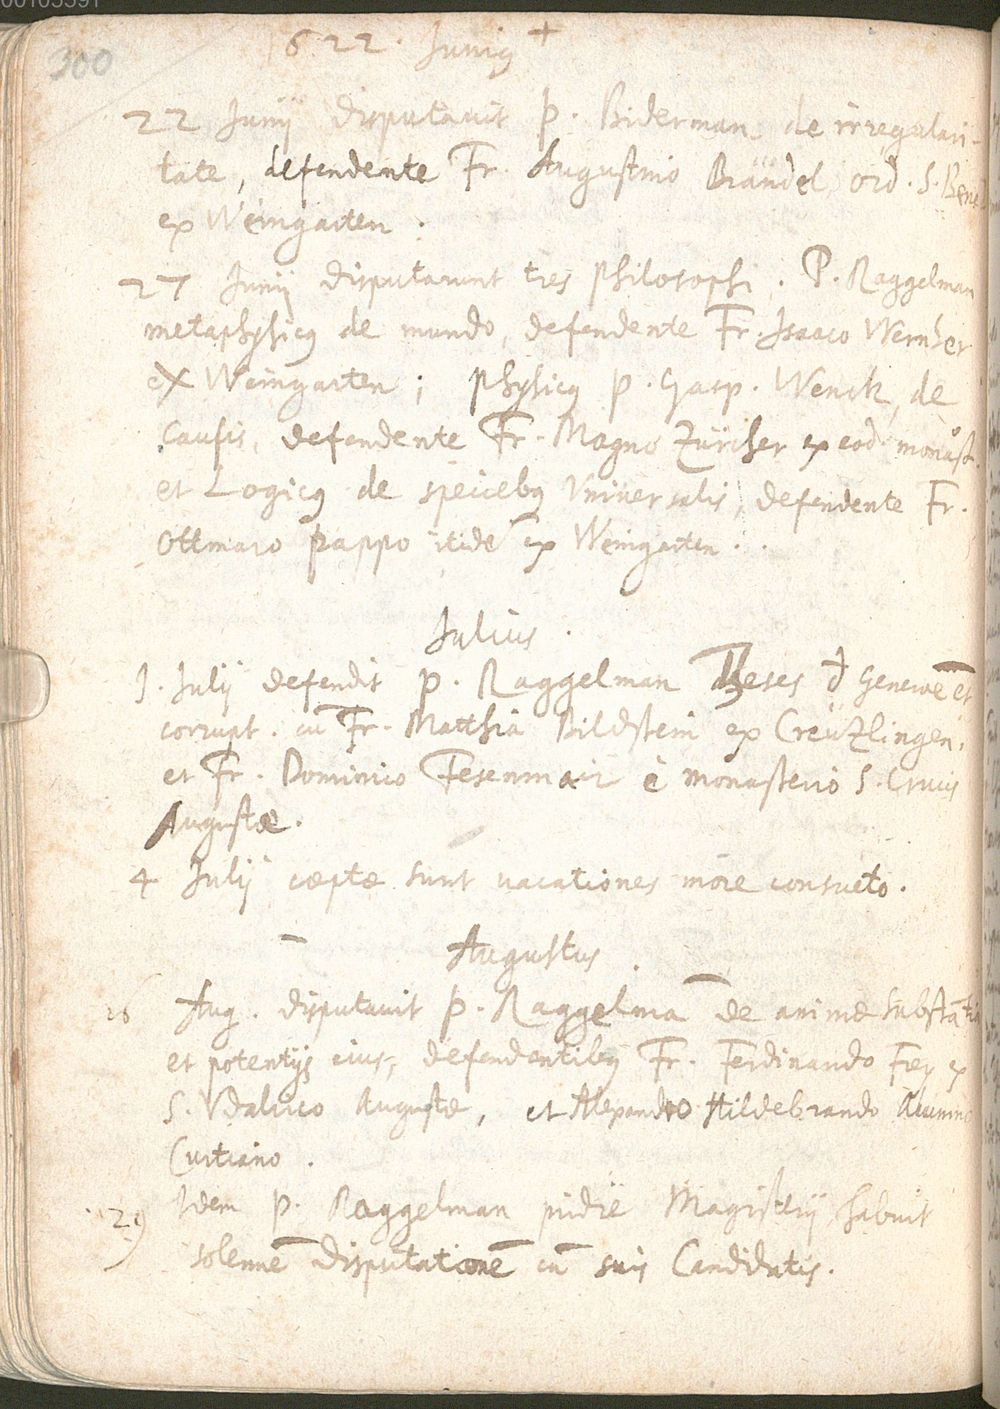 300
1622. Junius +
22 Junij disputauit P. Biderman de irregulari-
tate, defendente Fr. Augustino Brändel ord. S. Bened
ex Weingarten.
27 Junij disputarunt tres philosophi. P. Raggelman
metaphysicus de mundo, defendente Fr. Isaaco Wernher
ex Weingarten; physicus P. Gasp. Wenck, de
causis, defendente Fr. Magno Zürcher ex eod monast.
et Logicus de speciebus vniuersalis, defendente Fr.
Ottmaro pappo itidē ex Weingarten.
Julius.
1. Julij defendit P. Raggelman Theses d
corrupt. cū Fr. Matthia Bildstein ex Creützlingen,
et Fr. Dominico Fesenmair è monasterio S. Crucis
Augustæ.
4 Julij cœptæ sunt vacationes more consueto.
Augustus.
26 Aug. disputauit P. Raggelmā de animæ substātia
et potentijs eius, defendentibus Fr. Ferdinando Frey ex
S. Vdalrico Augustæ, et Alexandro Hildebrando Alumno
Curtiano.
29 Idem P. Raggelman pridie Magisterij habuit
solennē disputationē cū suis Candidatis.